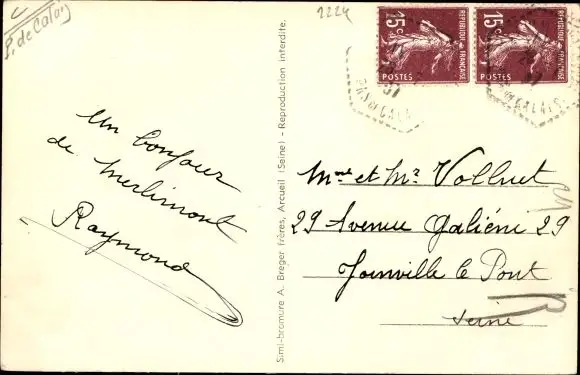 P. de Calais
2224
15c
REPUBLIQUE FRANÇAISE
POSTES
15c
REPUBLIQUE FRANÇAISE
POSTES
PAS DE CALAIS
Un bonjour
de Merlimont
Raymond
Simi-bromure A. Breger frères, Arcueil (Seine) - Reproduction interdite.
Mme et Mr Volluet
29 Avenue Galiéni 29
Joinville le Pont
Seine